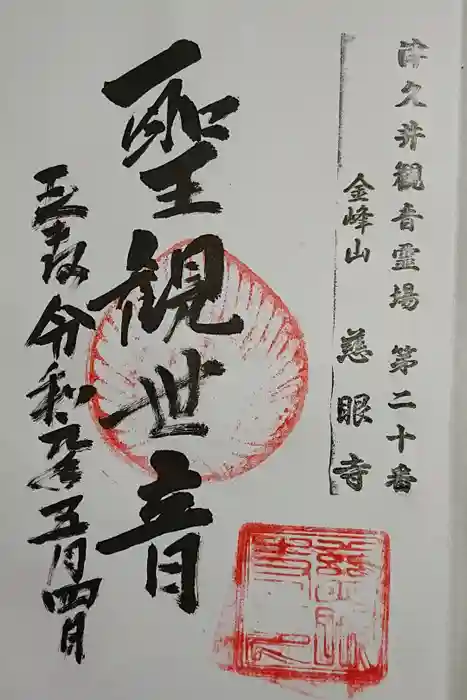 津久井観音霊場 第二十番
金峰山 慈眼寺
聖観世音
令和元年五月四日